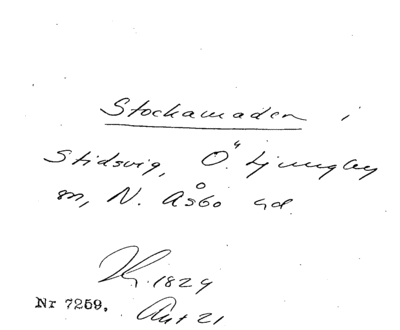 Stockamaden i
Stidsvig, Ö. Ljungby
sn, N. Åsbo hd.
1829
Nr 7259. Akt 21